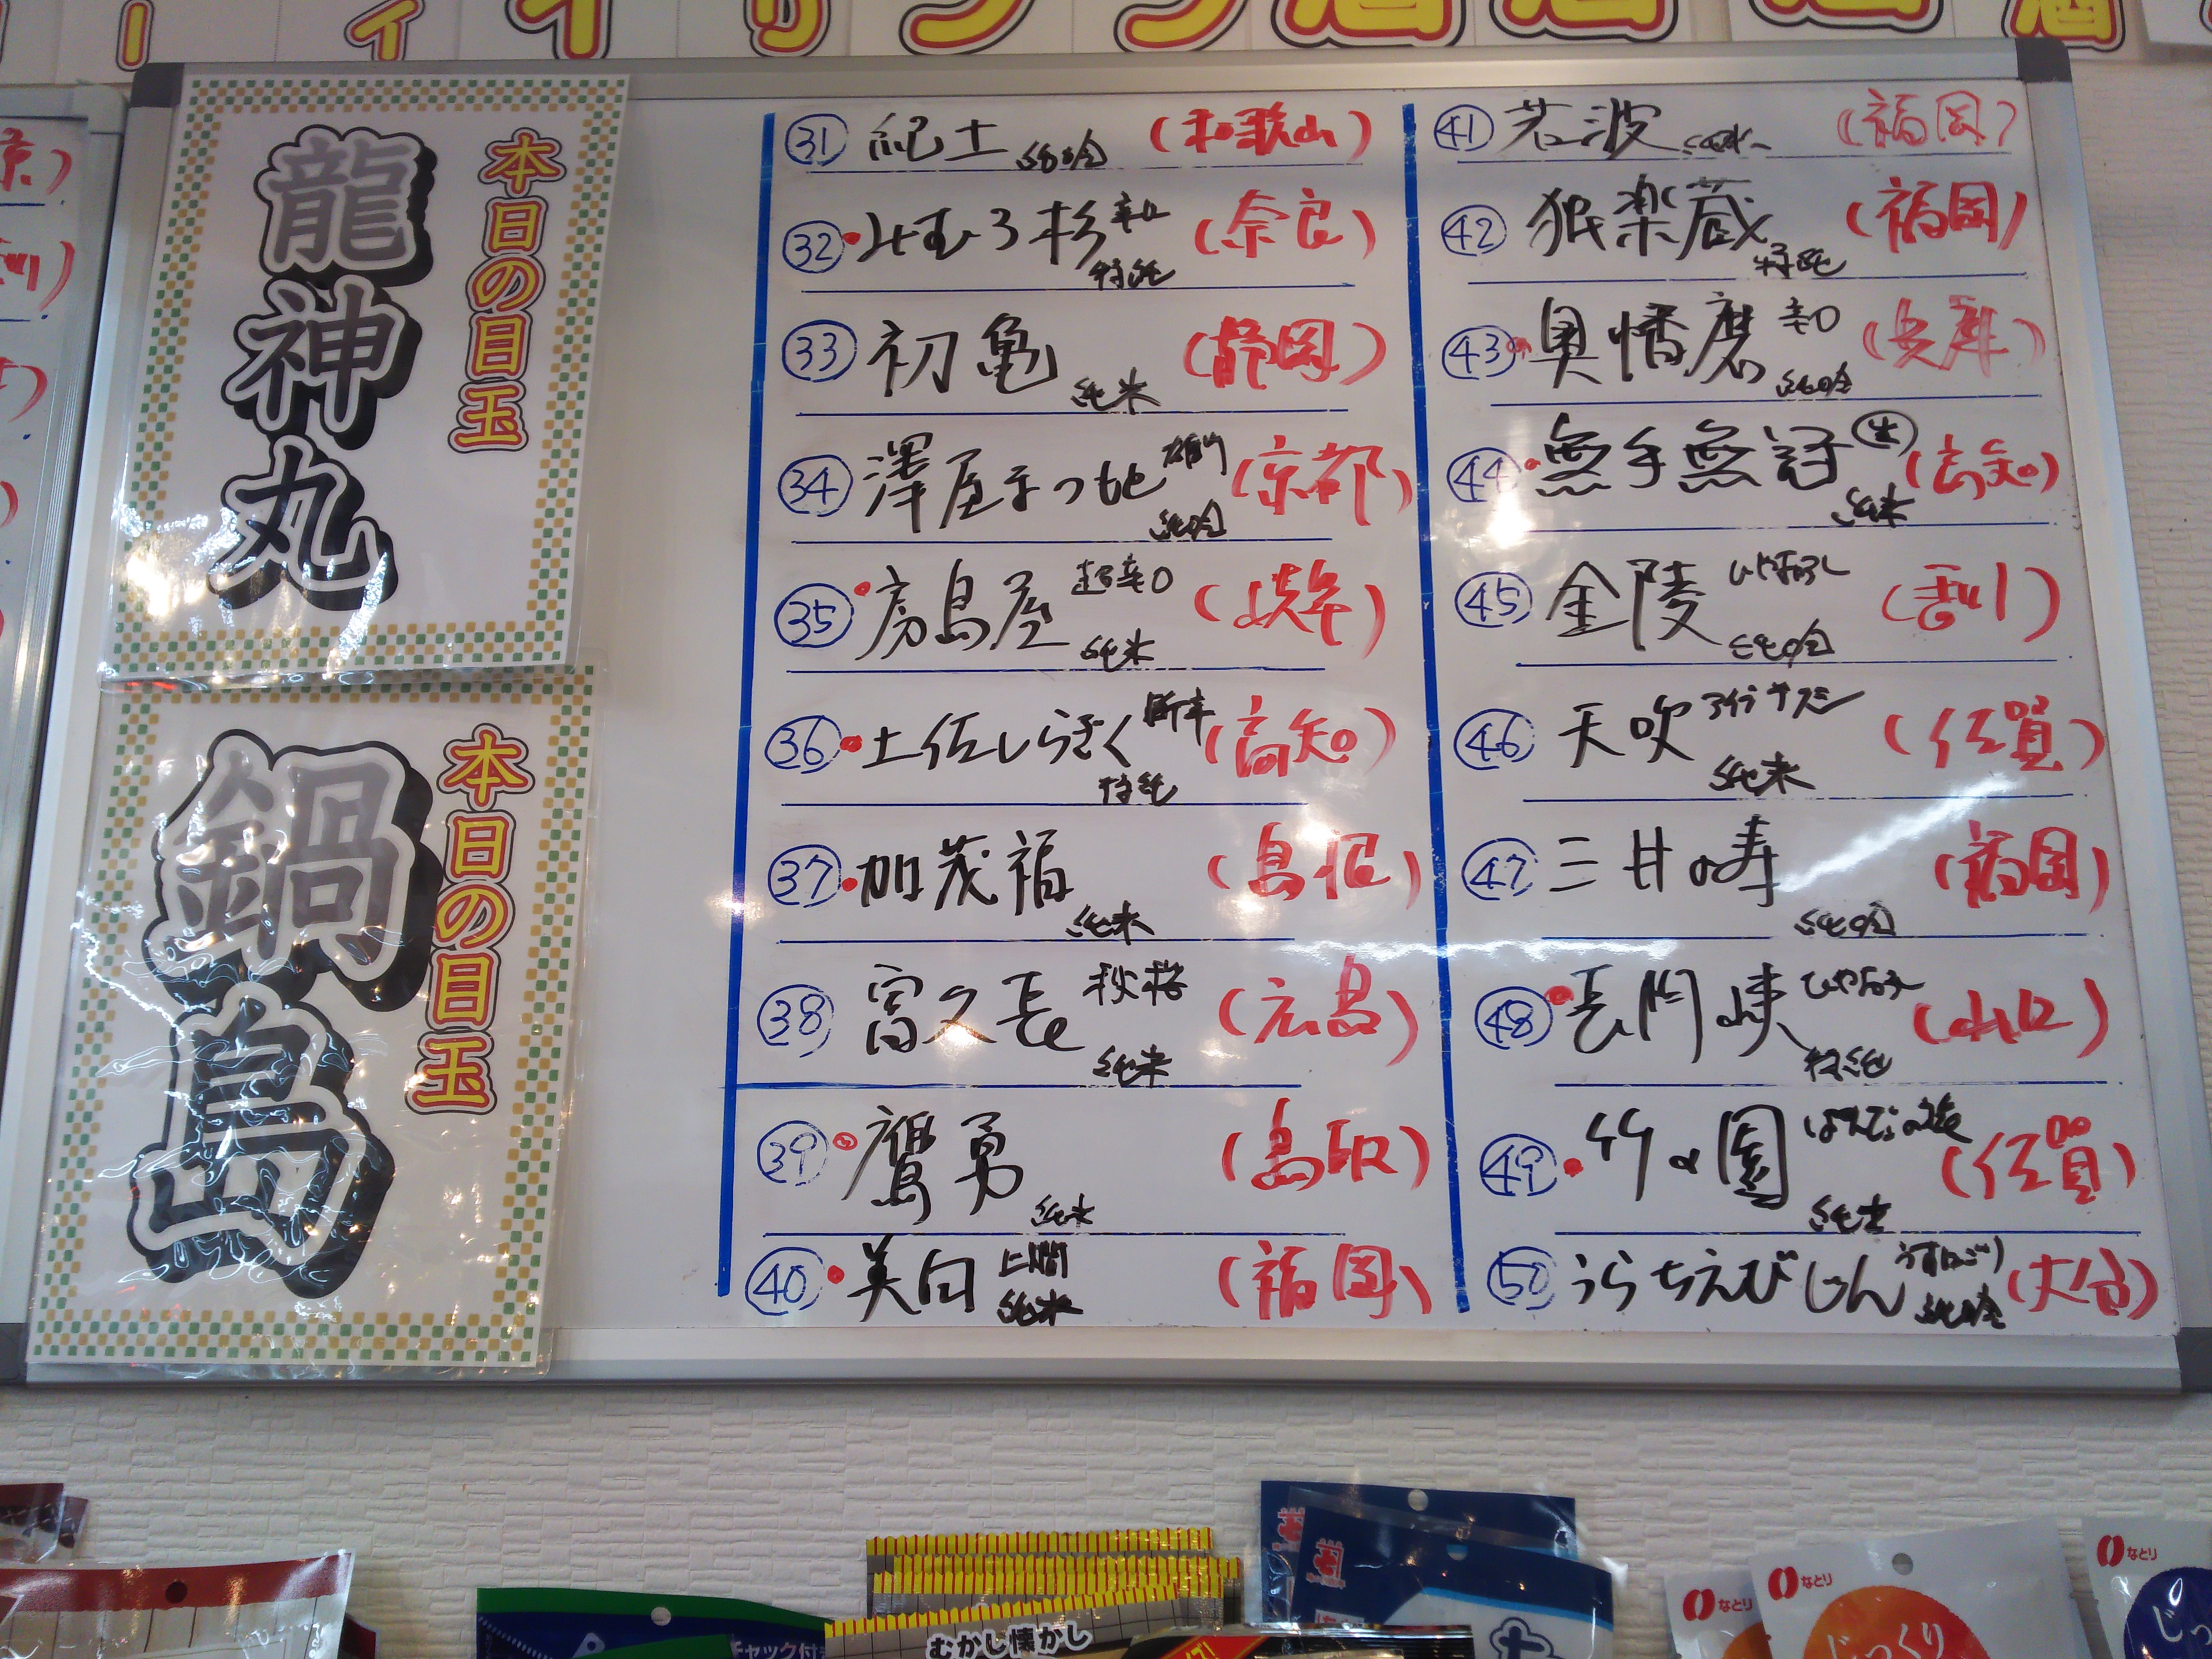 本日の目玉
龍神丸
本日の目玉
鍋島
㉛ 紀土 純吟 (和歌山)
㉜ みむろ杉 辛口 特純 (奈良)
㉝ 初亀 純米 (静岡)
㉞ 澤屋まつもと 雄町 純吟 (京都)
㉟ 房島屋 超辛口 純米 (岐阜)
㊱ 土佐しらぎく 特純 (高知)
㊲ 加茂福 純米 (島根)
㊳ 富久長 秋桜 純米 (広島)
㊴ 鷹勇 純米 (鳥取)
㊵ 美田 山門 純米 (福岡)
㊶ 若波 純米 (福岡)
㊷ 独楽蔵 特純 (福岡)
㊸ 奥播磨 辛口 純吟 (兵庫)
㊹ 無手無冠 生 純米 (高知)
㊺ 金陵 ひやおろし 純吟 (香川)
㊻ 天吹 純米 (佐賀)
㊼ 三井の寿 純吟 (福岡)
㊽ 長門峡 ひやおろし 特純 (山口)
㊾ 竹の園 純米 (佐賀)
㊿ うらちえびじん うすにごり 純吟 (大分)
むかし懐かし
チャック付き
なとり
なとり
じっくり
なとり